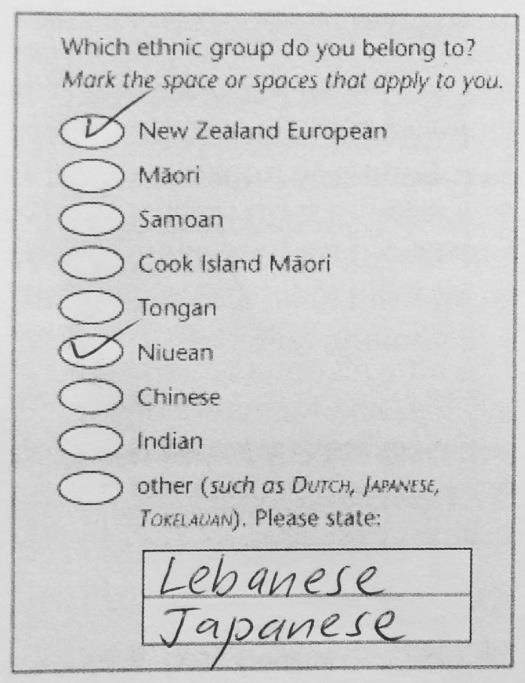 Which ethnic group do you belong to?
Mark the space or spaces that apply to you.
New Zealand European
Māori
Samoan
Cook Island Māori
Tongan
Niuean
Chinese
Indian
other (such as DUTCH, JAPANESE,
TOKELAUAN). Please state:
Lebanese
Japanese